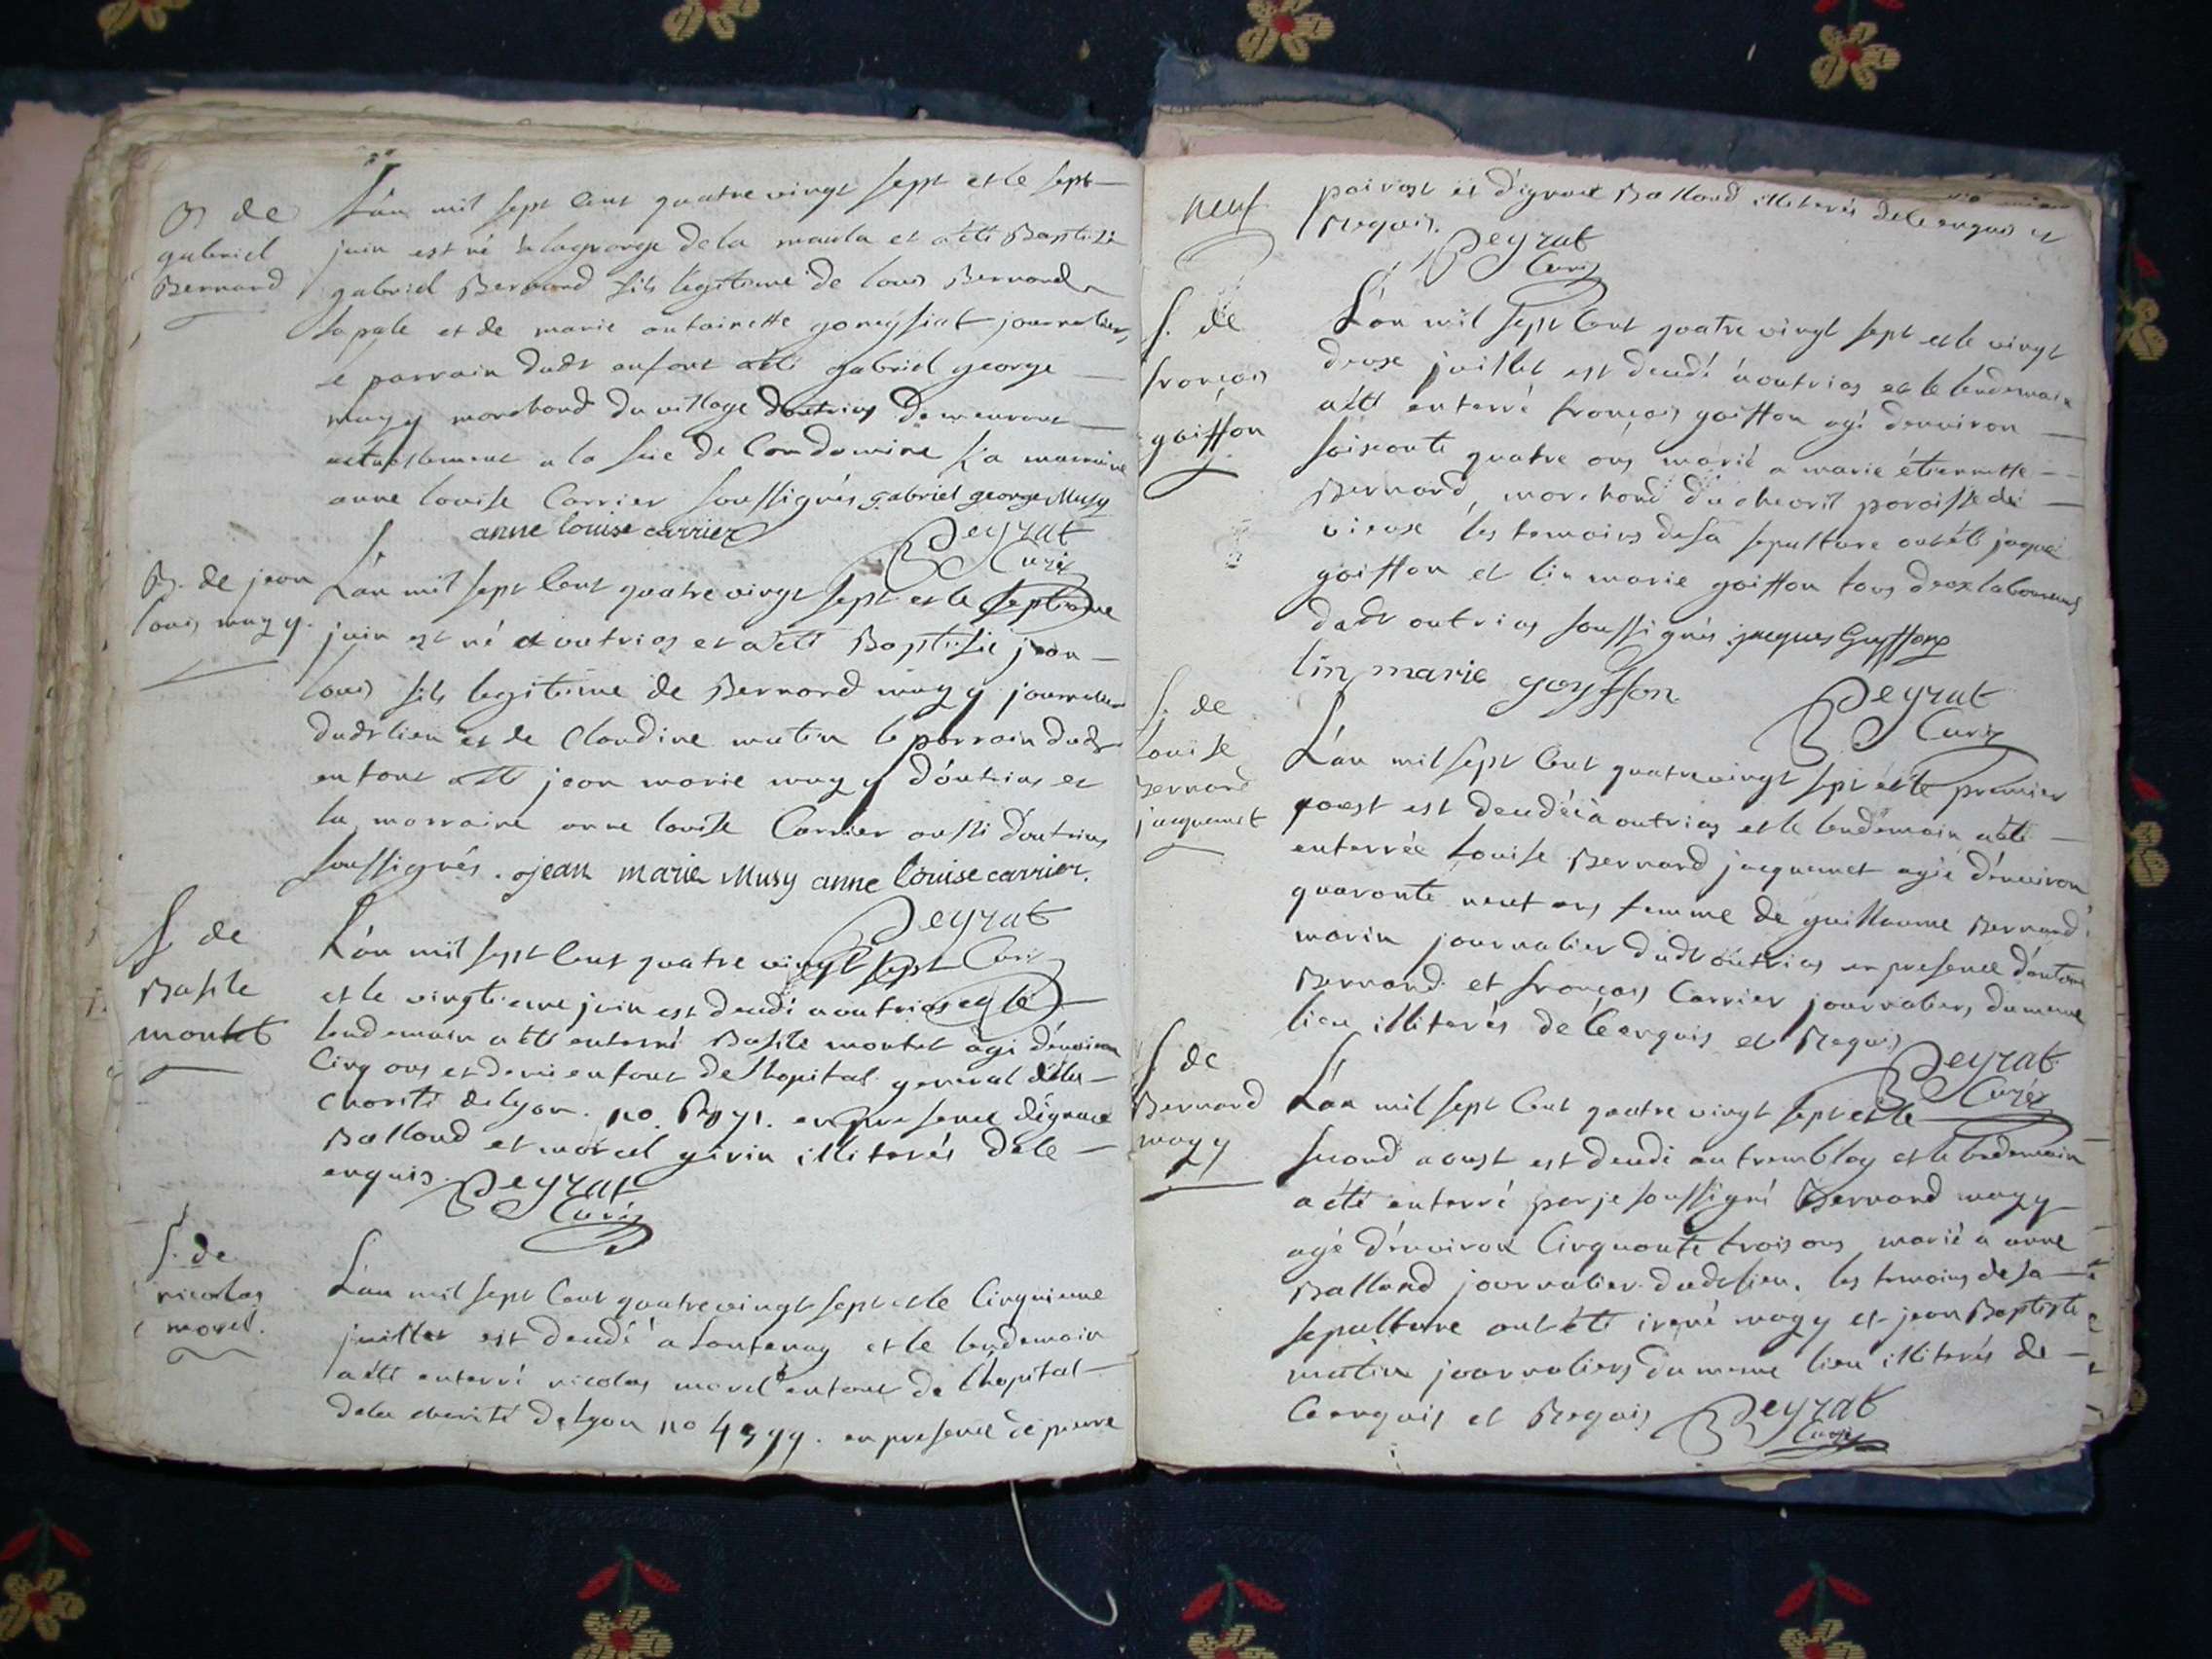 B de
gabriel
Bernard
L'an mil sept cent quatre vingt sept et le sept
juin est né à la grange de la maula et a été Baptisé
gabriel Bernard fils legitime de louis Bernard
la pale et de marie antoinette journalier,
le parrain dudt enfant a été gabriel george
mugy marchand du village doutrias demeurant
actuellement a la scie de Condamine la marraine
anne louise Carrier soussignés gabriel george Musy
anne louise carrier Peyrat
Curé
B. de jean
louis mugy.
L'an mil sept cent quatre vingt sept et le septieme
juin est né a outrias et a été Baptisé jean
louis fils legitime de Bernard mugy journalier
dudt lieu et de Claudine matin le parrain dudt
enfant a été jean marie mugy d'outrias et
la marraine anne louise Carrier aussi d'outrias
soussignés. jean marie Musy anne louise carrier.
Peyrat
Curé
S. de
Basile
montet
L'an mil sept cent quatre vingt sept
et le vingtieme juin est decedé a outrias et le
lendemain a été enterré Basile montet agé d'environ
cinq ans et demi enfant de l'hopital general de la
charité de lyon. no. en presence d'ignace
Balland et marcel girin illiterés de le
enquis. Peyrat
Curé
S. de
nicolas
morel.
L'an mil sept cent quatre vingt sept et le cinquieme
juillet est decedé a Lantenay et le lendemain
a été enterré nicolas morel enfant de l'hopital
de la charité de lyon no en presence de pierre
neuf
poirast et d'ignace Balland illiterés de le enquis et
Requis. Peyrat
Curé
S. de
françois
goiffon
L'an mil sept cent quatre vingt sept et le vingt
deux juillet est decedé a outrias et le lendemain
a été enterré françois goiffon agé d'environ
soixante quatre ans marié a marie étiennette
Bernard, marchand du paroisse de
vieux les temoins de sa sepulture ont été jaques
goiffon et lin marie goiffon tous deux laboureurs
dudt outrias soussignés. jaques Goyffon
lin marie goyffon. Peyrat
Curé
S. de
Louise
Bernard
jacquemet
L'an mil sept cent quatre vingt sept et le premier
aoust est decedée à outrias et le lendemain a été
enterrée Louise Bernard jacquemet agée d'environ
quarante neuf ans femme de guillaume Bernard
morin journalier dudt outrias en presence d'antoine
Bernard et françois Carrier journaliers, du meme
lieu illiterés de ce enquis et Requis Peyrat
Curé
S. de
Bernard
mugy
L'an mil sept cent quatre vingt sept et le
second aoust est decedé au tremblay et le lendemain
a été enterré par je soussigné Bernard mugy
agé d'environ cinquante trois ans marié a anne
Balland journalier dudt lieu. les temoins de sa
sepulture ont été irené mugy et jean Baptiste
matin journaliers du meme lieu illiterés de
ce enquis et Requis Peyrat
Curé